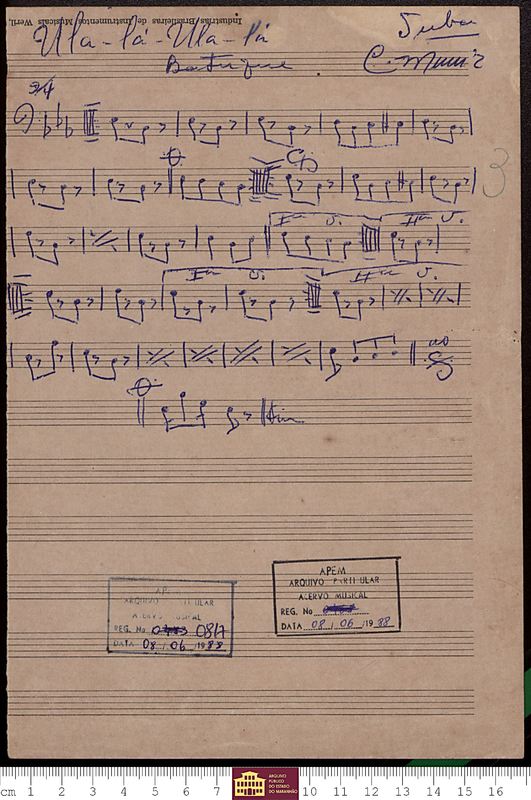 Industrias Brasileiras de Instrumentos Musicais Weril
Ula-lá-Ula-lá
Tuba
Batuque
C. Muniz
2/4
3
Iª V.
IIª V.
Iª V.
IIª V.
ao
Fim
APEM
ARQUIVO PARTICULAR
ACERVO MUSICAL
REG. No
DATA 08 / 06 / 1988
APEM
ARQUIVO PARTICULAR
ACERVO MUSICAL
REG. No 0817
DATA 08 / 06 / 1988
cm 1 2 3 4 5 6 7 10 11 12 13 14 15 16
ARQUIVO
PÚBLICO
DO ESTADO
DO MARANHÃO